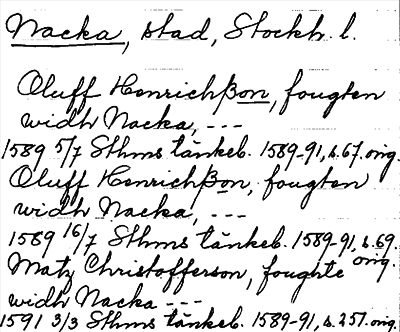 Nacka, stad, Stockh. l.
Oluff Henrichßon, fougten
widh Nacka, ---
1589 5/7 Sthms tänkeb. 1589-91, s. 67. orig.
Oluff Henrichßon, fougten
widh Nacka, ---
1589 16/7 Sthms tänkeb. 1589-91, s. 69. orig.
Matz Christofferson, foughte
widh Nacka ---
1591 3/3 Sthms tänkeb. 1589-91, s. 251. orig.